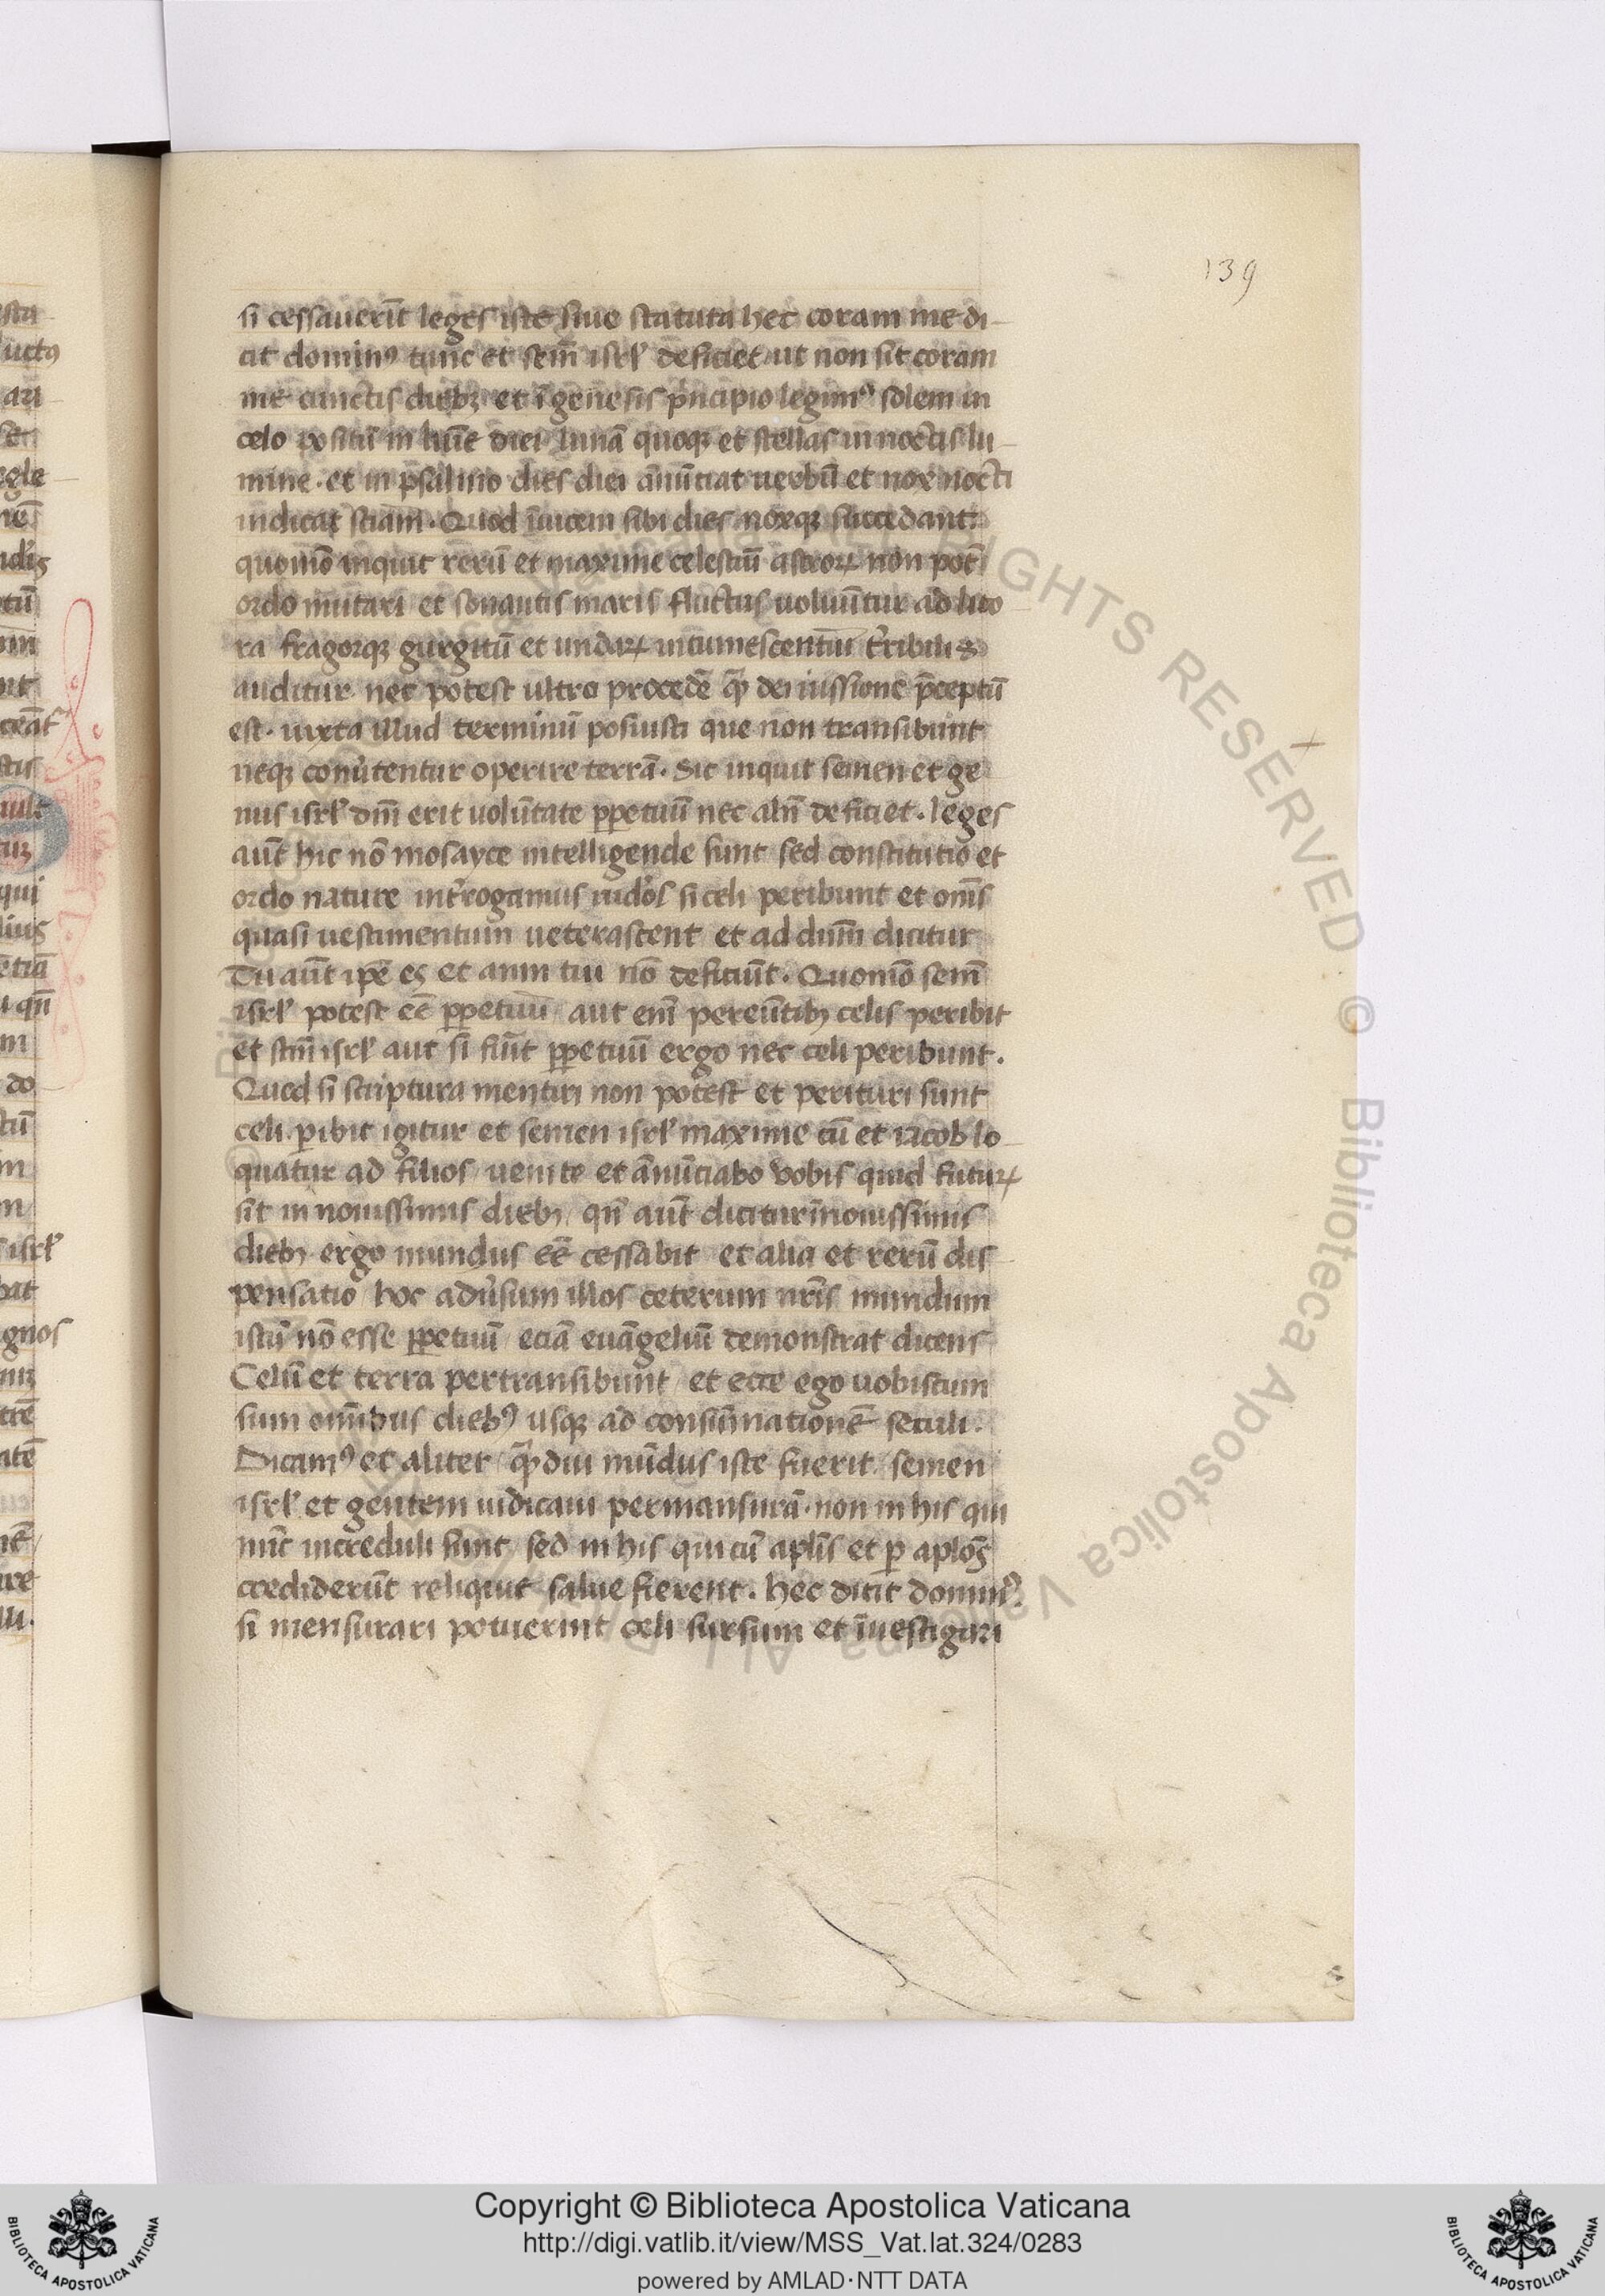 139
si cessauerīt leges iste siue statuta hec coram me di-
cit dominꝰ tunc et sem̄ isrl̓ deficiet ut non sit coram
me cunctis diebꝫ et ī genesis pͥncipio legimꝰ solem in
celo positū in lum̄e diei lunā quoqꝫ et stellas in noctis lu-
mine · et in psalmo dies diei ānūciat uerbū et nox nocti
indicat sciam̄ · Quod īuicem sibi dies noxqꝫ succedant
quomō inquit rerū et maxime celestiū astroꝝ non pot̄
ordo mutari et sonantis maris fluctus uoluūtur ad lito-
ra fragorqꝫ gurgitū et undaꝝ intumescentiū t̓ribilis
auditur nec potest ultra procedē qᷓꝫ dei iussione p̄ceptū
est · iuxta illud terminū posuisti que non transibunt
neqꝫ conu̓tentur operire terrā · Sic inquit semen et ge
nus isrl̓ dn̄i erit uolūtate ꝑpetuū nec aln̄ deficiet · leges
aut̄ hic nō mosayce intelligende sunt sed constitutio et
ordo nature int̓rogamus iudo̓s si celi peribunt et om̄s
quasi uestimentum ueterascent et ad dn̄m dicitur
Tu aut̄ ipē es et anni tui nō deficiūt · Quomō sem̄
isrl̓ potest eē ꝑpetuū aut eni̓ pereūtibꝫ celis peribit
et sem̄ isrl̓ aut si fuīt ꝑpetuū ergo nec celi peribunt ·
Quod si scriptura mentiri non potest et perituri sunt
celi ꝑibit igitur et semen isrl̓ maxime cū et iacob lo-
quatur ad filios / uenite et ānūciabo vobis quid futuꝝ
sit in nouissimis diebꝫ / qn̄ aut̄ dicitur ī nouissimis
diebꝫ ergo mundus eē cessabit et alia et rerū dis-
pensatio / hoc adu̓sum illos ceterum nr̄is mundum
istū nō esse ꝑpetuū / eciā euāgeliū demonstrat dicens
Celū et terra pertransibunt / et ecce ego uobiscum
sum om̄ibus diebꝰ usqꝫ ad consūmationē seculi ·
Dicamꝰ et aliter qᷓꝫdiu mūdus iste fuerit semen
isrl̓ et gentem iudicam permansurā · non in his qui
nūc increduli sunt sed in his qui cū aplīs et ꝑ aplōs
crediderūt reliquit salue fierent · hec dicit dominꝰ ·
si mensurari potuerint celi sursum et īuestigari
Copyright © Biblioteca Apostolica Vaticana
http://digi.vatlib.it/view/MSS_Vat.lat.324/0283
powered by AMLAD·NTT DATA